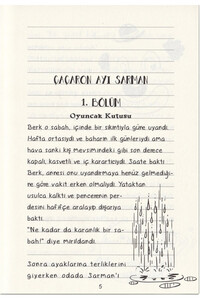 GAGARON AYI SARMAN
1. BÖLÜM
Oyuncak Kutusu
Berk o sabah, içinde bir sıkıntıyla güne uyandı.
Hafta ortasıydı ve baharın ilk günleriydi ama
hava sanki kış mevsimindeki gibi son derece
kapalı, kasvetli ve iç karartıcıydı. Saate baktı
Berk, annesi onu uyandırmaya henüz gelmediği-
ne göre vakit erken olmalıydı. Yataktan
usulca kalktı ve pencerenin per-
desini hafifçe aralayıp dışarıya
baktı.
"Ne kadar da karanlık bir sa-
bah!" diye mırıldandı.
Sonra ayaklarına terliklerini
giyerken odada Sarman'ı
5